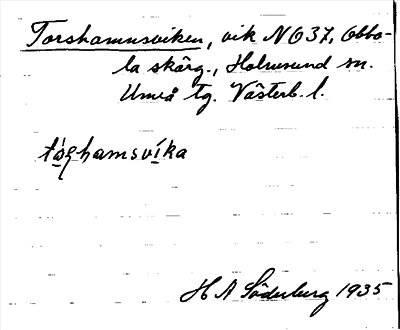 Torshamnsviken, vik NO37, Obbo-
la skärg., Holmsund sn.
Umeå tg. Västerb. l.
tọ́ʂhamsvíka
H A Söderberg 1935